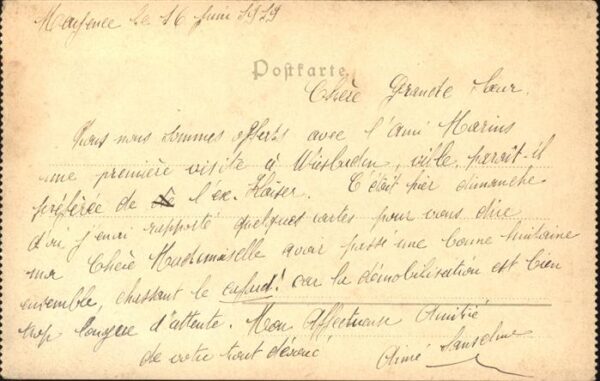 Mayence le 16 Juin 1919
Postkarte.
Chère Grande Sœur.
Nous nous sommes offerts avec l'ami Marius
une première visite à Wiesbaden, ville, paraît-il
préférée de l'ex. Kaiser. C'était hier dimanche
d'où j'en ai rapporté quelques cartes pour vous dire
ma Chère Mademoiselle avoir passé une bonne
ensemble, chassant le cafard! car la démobilisation est bien
trop longue d'attente. Mon Affectueuse Amitié
de votre tout dévoué
Aimé